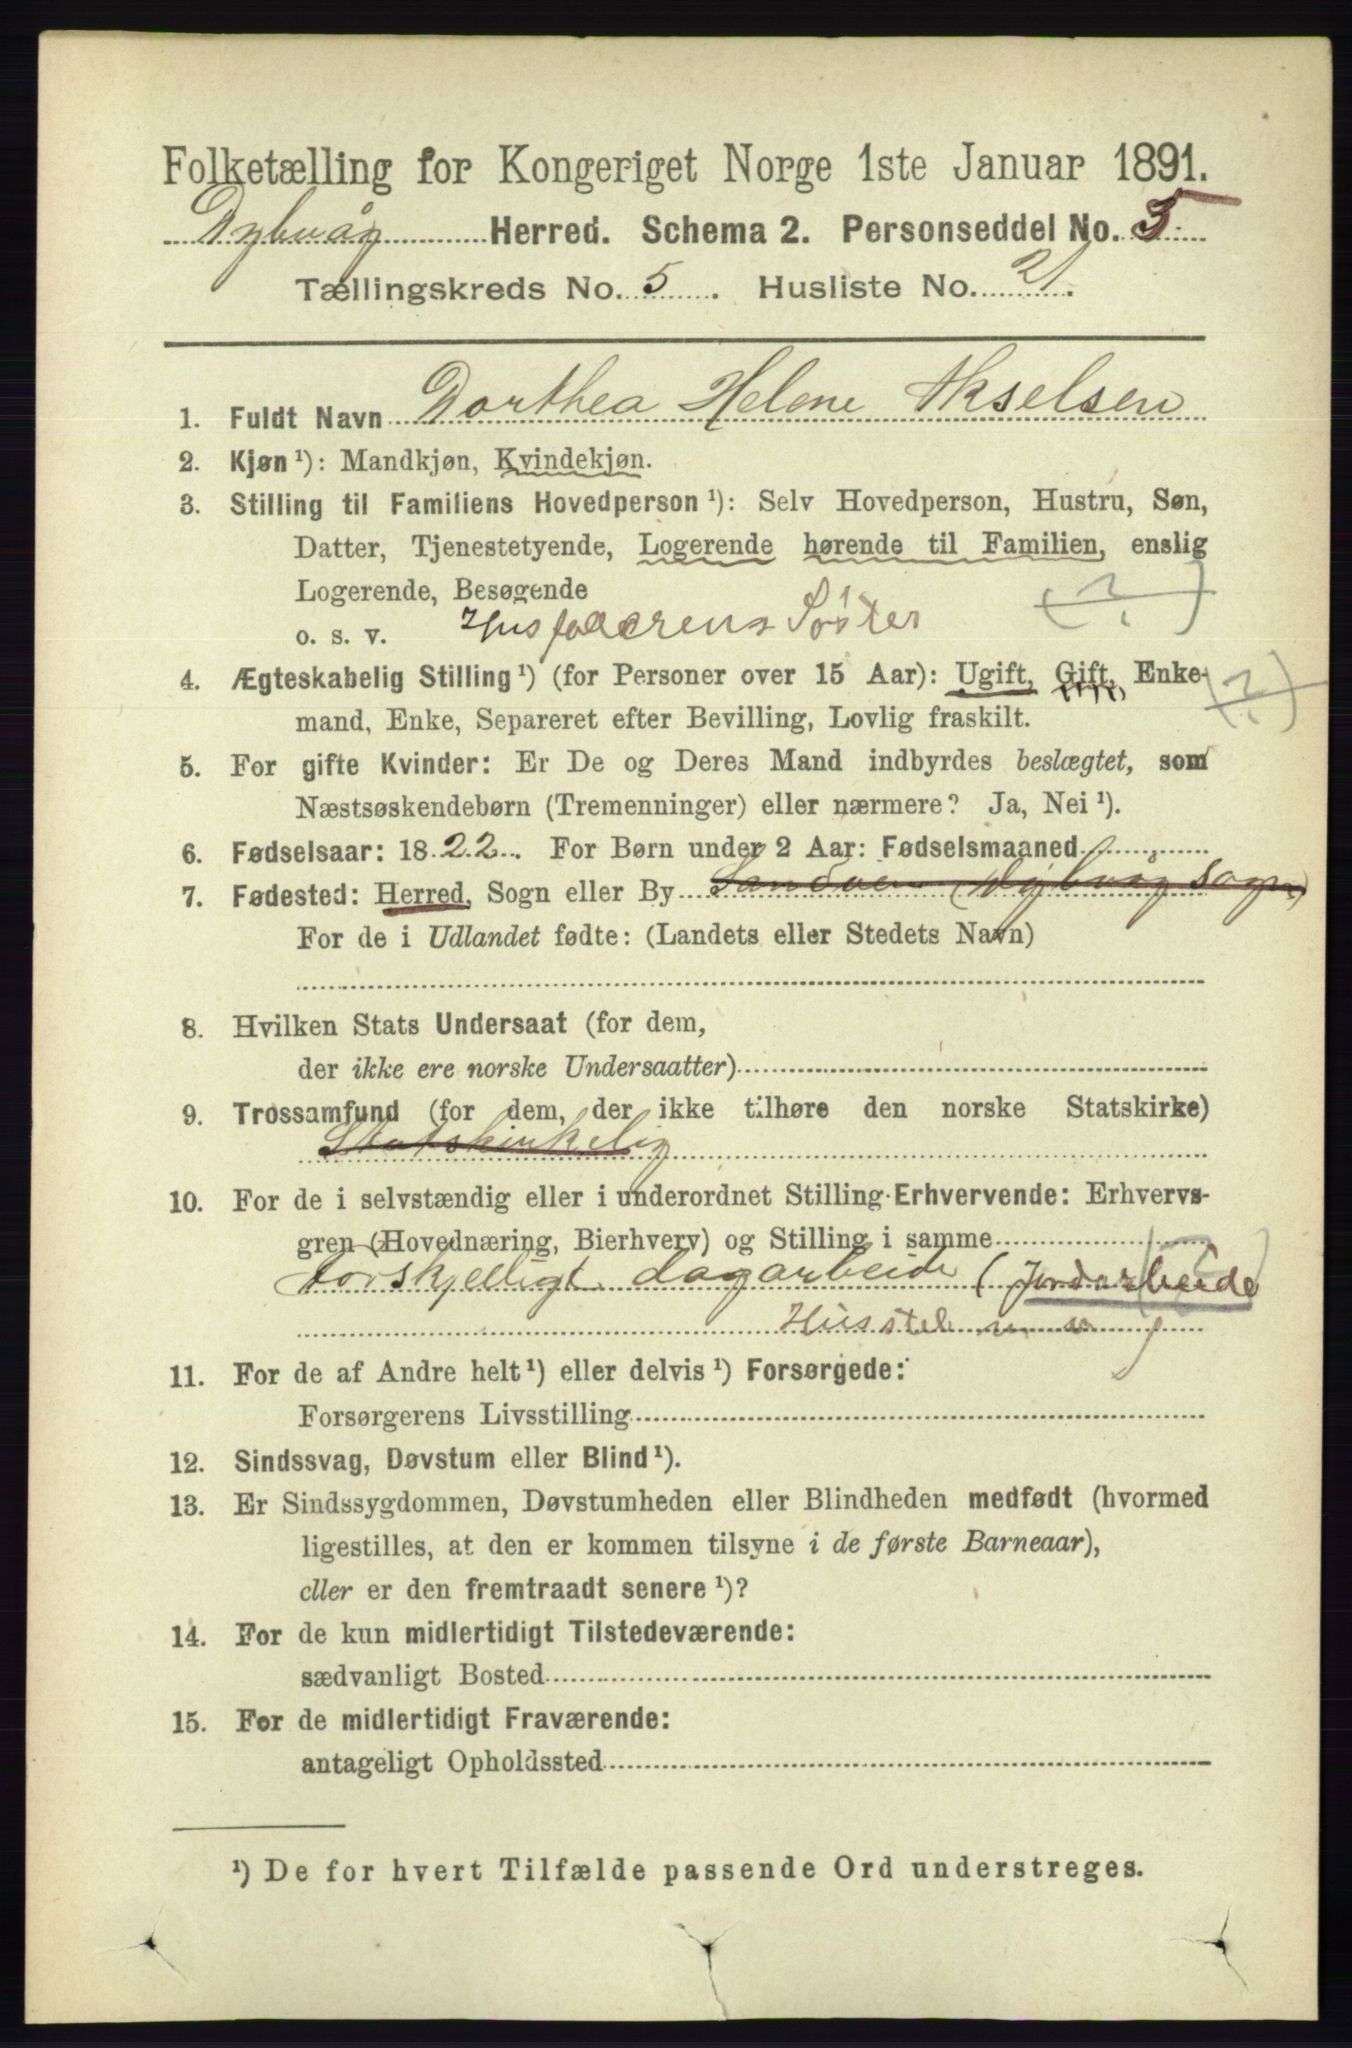 Folketælling for Kongeriget Norge 1ste Januar 1891.
Dybvåg Herred. Schema 2. Personseddel No. 5
Tællingskreds No. 5. Husliste No. 21.
1. Fuldt Navn Dorthea Helene Akselsen
2. Kjøn¹): Mandkjøn, Kvindekjøn.
3. Stilling til Familiens Hovedperson¹): Selv Hovedperson, Hustru, Søn,
Datter, Tjenestetyende, Logerende hørende til Familien, enslig
Logerende, Besøgende (?)
o. s. v. Husfaderens Søster
4. Ægteskabelig Stilling¹) (for Personer over 15 Aar): Ugift, Gift, Enke- (?)
mand, Enke, Separeret efter Bevilling, Lovlig fraskilt.
5. For gifte Kvinder: Er De og Deres Mand indbyrdes beslægtet, som
Næstsøskendebørn (Tremenninger) eller nærmere? Ja, Nei¹).
6. Fødselsaar: 1822. For Børn under 2 Aar: Fødselsmaaned
7. Fødested: Herred, Sogn eller By Sandøen (Dybvåg Sogn)
For de i Udlandet fødte: (Landets eller Stedets Navn)
8. Hvilken Stats Undersaat (for dem,
der ikke ere norske Undersaatter)
9. Trossamfund (for dem, der ikke tilhøre den norske Statskirke)
Statskirkelig
10. For de i selvstændig eller i underordnet Stilling Erhvervende: Erhvervs-
gren (Hovednæring, Bierhverv) og Stilling i samme (?)
Forskjelligt dagarbeide (Jordarbeide
Husstel m m)
11. For de af Andre helt¹) eller delvis¹) Forsørgede:
Forsørgerens Livsstilling
12. Sindssvag, Døvstum eller Blind¹).
13. Er Sindssygdommen, Døvstumheden eller Blindheden medfødt (hvormed
ligestilles, at den er kommen tilsyne i de første Barneaar),
eller er den fremtraadt senere¹)?
14. For de kun midlertidigt Tilstedeværende:
sædvanligt Bosted
15. For de midlertidigt Fraværende:
antageligt Opholdssted
¹) De for hvert Tilfælde passende Ord understreges.